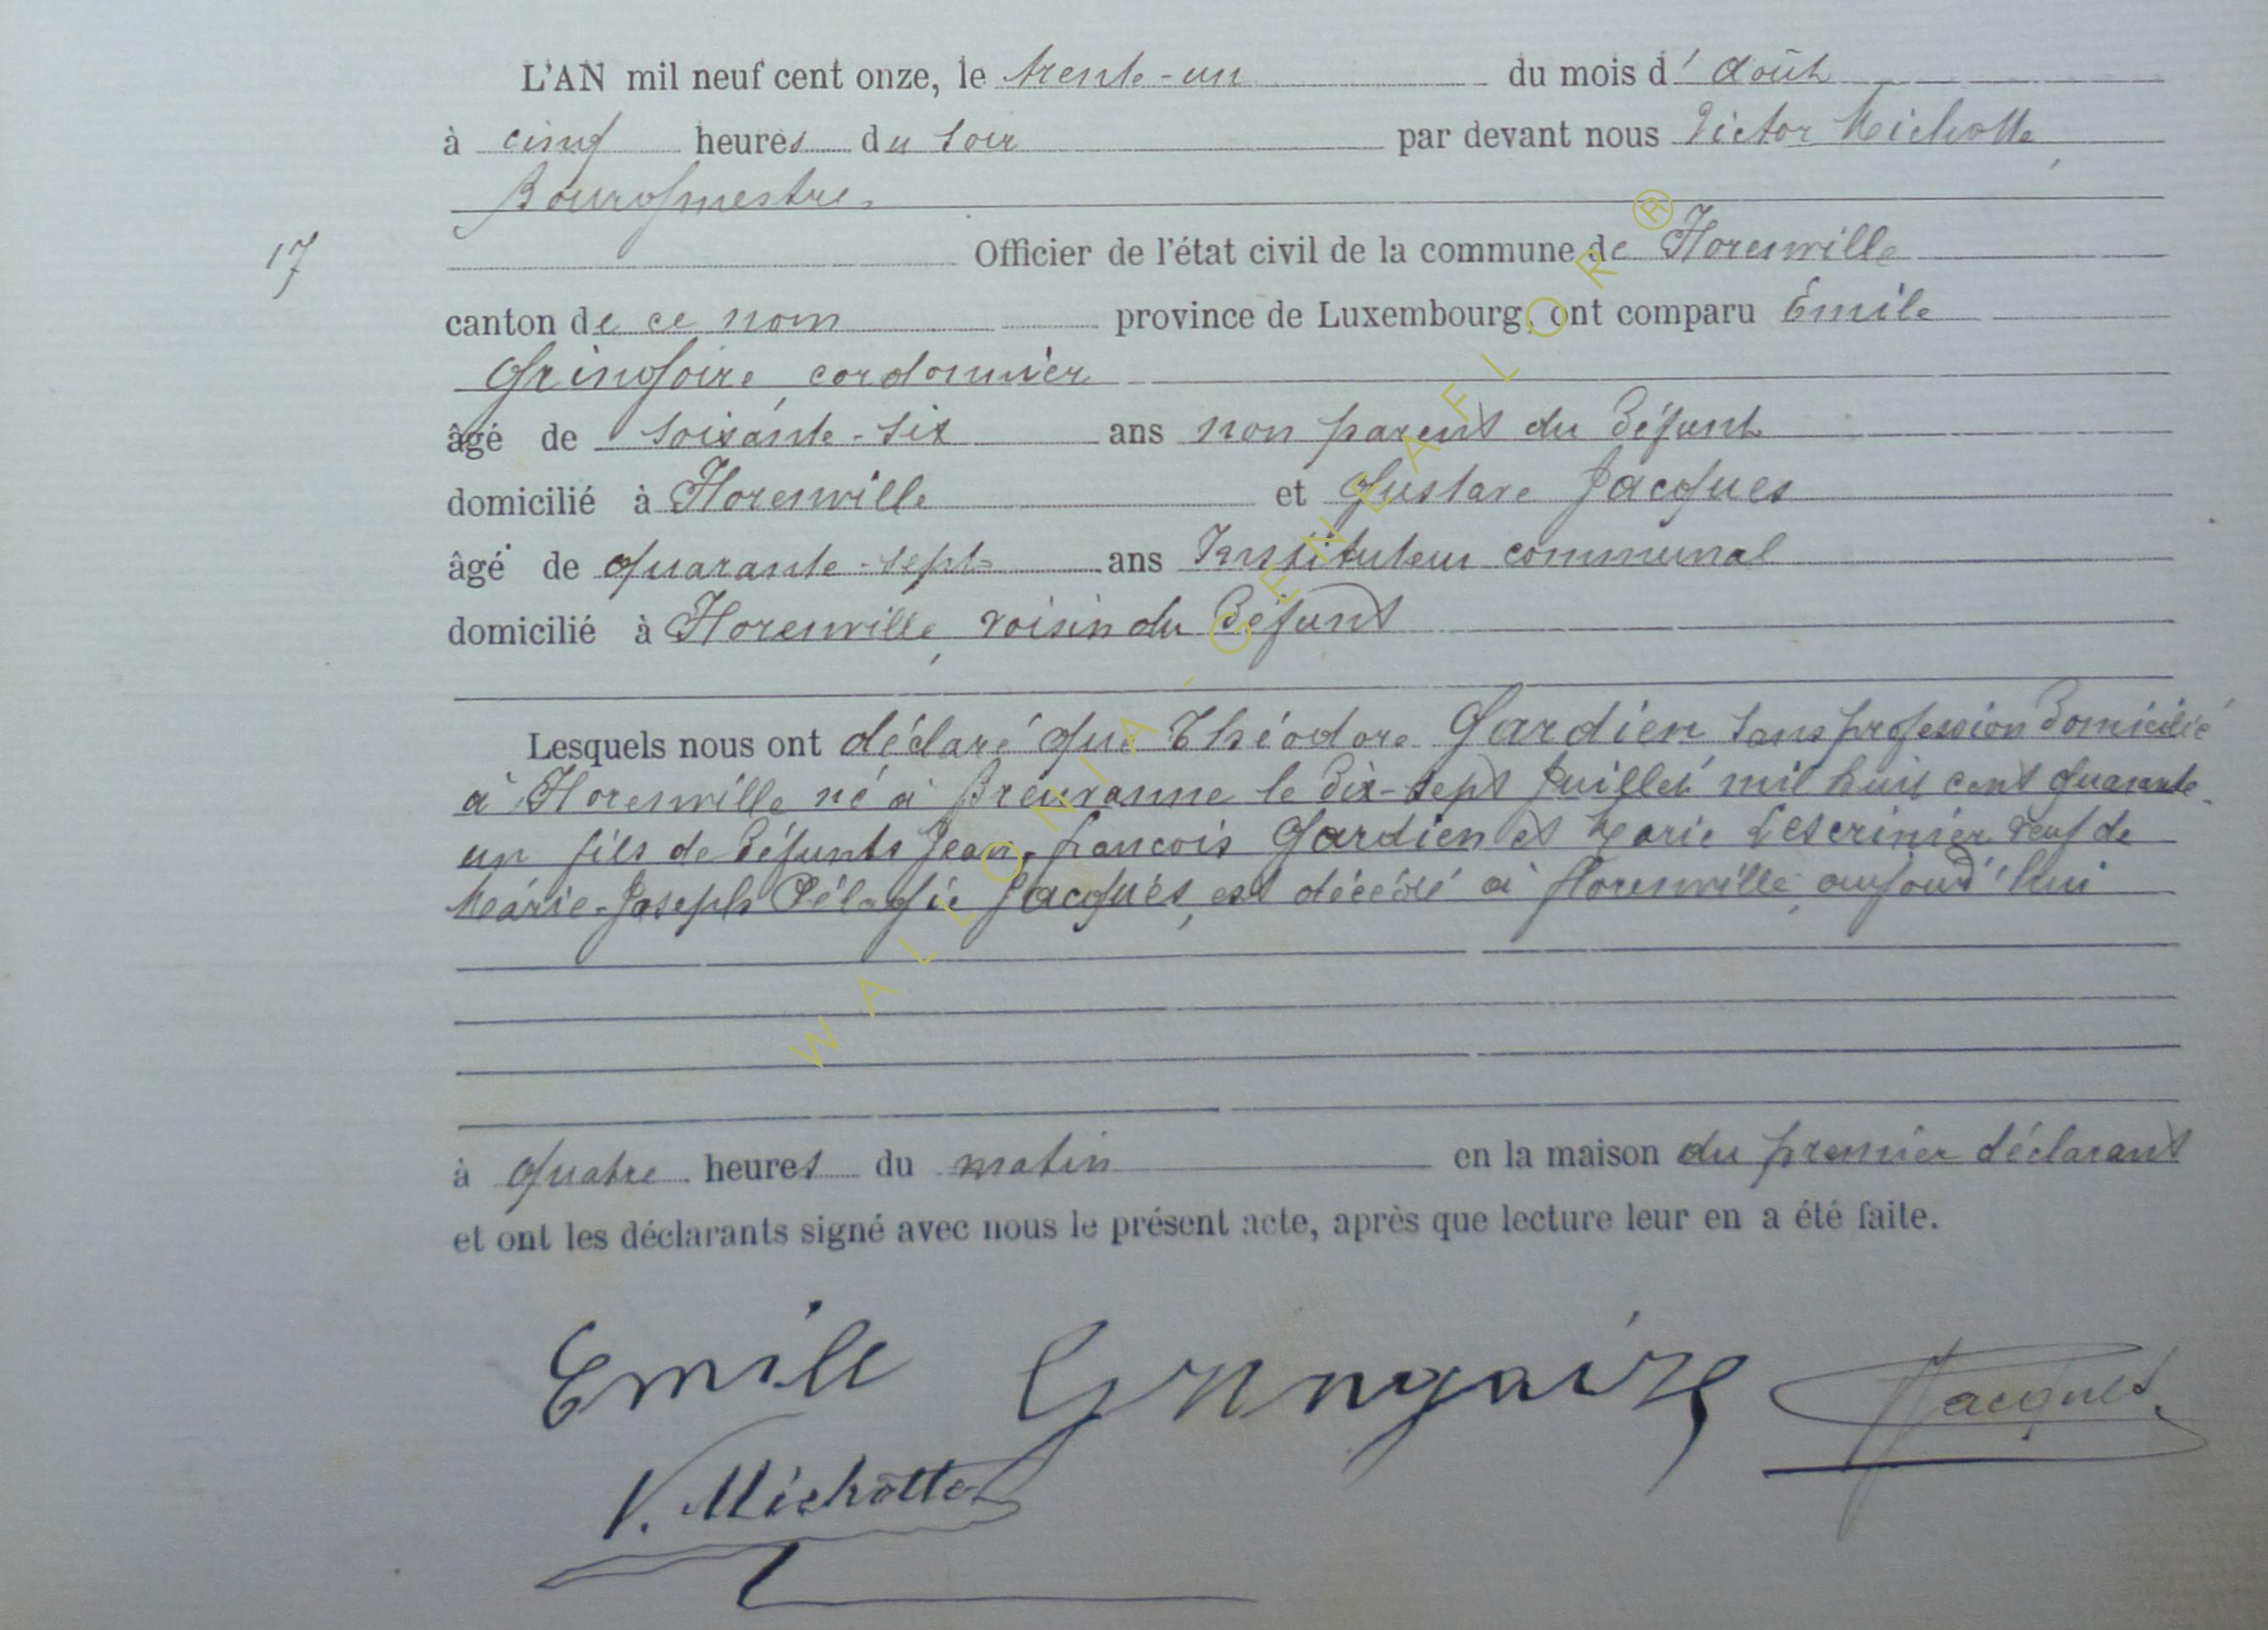 L'AN mil neuf cent onze, le trente-un du mois d'août
à cinq heures du soir par devant nous Victor Michotte,
Bourgmestre,
17 Officier de l'état civil de la commune de Florenville
canton de ce nom province de Luxembourg, ont comparu Émile
Gringoire, cordonnier
âgé de soixante-six ans non parent du défunt
domicilié à Florenville et Gustave Jacques
âgé de quarante-sept ans Instituteur communal
domicilié à Florenville, voisin du défunt
Lesquels nous ont déclaré que Théodore Gardien, sans profession domicilié
à Florenville né à Breuvanne le dix-sept Juillet mil huit cent quarante-
un fils de défunts Jean-françois Gardien et Marie Lescrinier veuf de
Marie-Joseph Pélagie Jacques, est décédé à florenville, aujourd'hui
à quatre heures du matin en la maison du premier déclarant
et ont les déclarants signé avec nous le présent acte, après que lecture leur en a été faite.
Emile Gringoire Jacques
V. Michotte
WALLONIA - GENEAFLOR ®